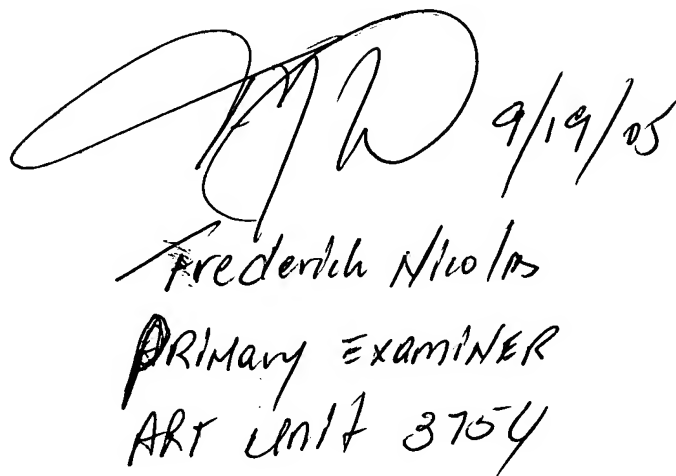 9/19/05
Frederick Nicolas
PRIMary EXAMINER
ART Unit 3754